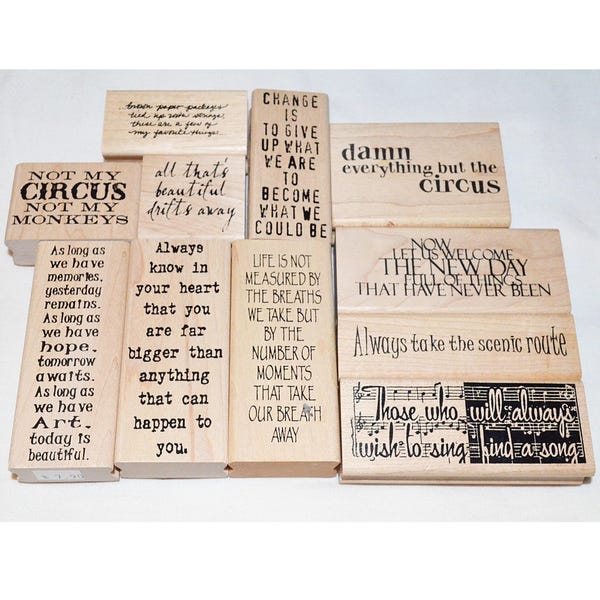 ...brown paper packages
tied up with strings,
these are a few of
my favorite things...
CHANGE
IS
TO GIVE
UP WHAT
WE ARE
TO
BECOME
WHAT WE
COULD BE
damn
everything but the
circus
NOT MY
CIRCUS
NOT MY
MONKEYS
all that's
beautiful
drifts away
NOW
LET US WELCOME
THE NEW DAY
FULL OF THINGS
THAT HAVE NEVER BEEN
As long as
we have
memories,
yesterday
remains.
As long as
we have
hope,
tomorrow
awaits.
As long as
we have
Art,
today is
beautiful.
$7.90
Always
know in
your heart
that you
are far
bigger than
anything
that can
happen to
you.
LIFE IS NOT
MEASURED BY
THE BREATHS
WE TAKE BUT
BY THE
NUMBER OF
MOMENTS
THAT TAKE
OUR BREATH
AWAY
Always take the scenic route
Those who will always
wish to sing find a song